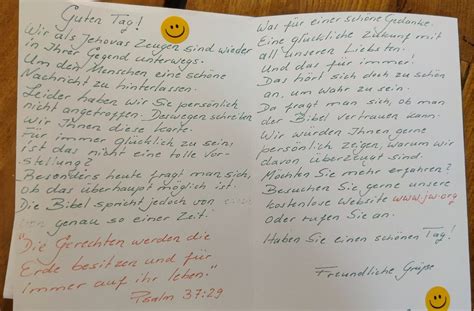 Guten Tag!
Wir als Jehovas Zeugen sind wieder
in Ihrer Gegend unterwegs.
Um den Menschen eine schöne
Nachricht zu hinterlassen.
Leider haben wir Sie persönlich
nicht angetroffen. Deswegen schreiben
wir Ihnen diese Karte.
Für immer glücklich zu sein,
ist das nicht eine tolle Vor-
stellung?
Besonders heute fragt man sich,
ob das überhaupt möglich ist.
Die Bibel spricht jedoch von
genau so einer Zeit.
"Die Gerechten werden die
Erde besitzen und für
immer auf ihr leben."
Psalm 37:29
Was für einer schöne Gedanke.
Eine glückliche Zukunft mit
all unseren Liebsten.
Und das für immer!
Das hört sich doch zu schön
an, um wahr zu sein.
Da fragt man sich, ob man
der Bibel vertrauen kann.
Wir würden Ihnen gerne
persönlich zeigen, warum wir
davon überzeugt sind.
Möchten Sie mehr erfahren?
Besuchen Sie gerne unsere
kostenlose Website www.jw.org
oder rufen Sie an.
Haben Sie einen schönen Tag!
Freundliche Grüße